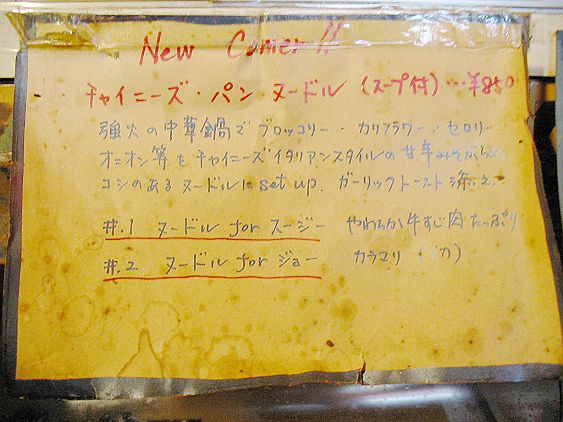 New Comer!!
チャイニーズ・パン ヌードル (スープ付)…¥850
強火の中華鍋でブロッコリー・カリフラワー・セロリー
オニオン等をチャイニーズイタリアンスタイルの甘辛みそがらめ
コシのあるヌードルに set up. ガーリックトースト添え.
#.1 ヌードル for スージー やわらか牛すじ肉たっぷり
#.2 ヌードル for ジョー カラマリ (イカ)